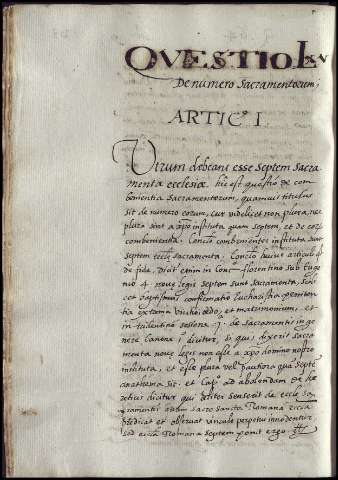 QVESTIO LXV
De numero Sacramentorum
ARTIC⁰ I.
Vtrum debeant esse Septem Sacra
menta ecclesiæ. hic est questio de com
bonientia Sacramentorum, quamuis titulus
sit de numero eorum, cur videlicet non plura, nec
plura sint a xpo instituta quam septem, et de eorum
combenientia. Conclo combenienter instituta sunt
septem eccle Sacramenta. Conclo huius articuli est
de fide, dicit enim in Conc. florentino sub Euge
nio 4 nouę legis septem sunt Sacramenta, scili
cet baptismus confirmatio Eucharistia peniten
tia extrema vnctio ordo, et matrimonium, et
in tridentino sessione 7. de Sacramentis in ge
nere Canone 1 dicitur, si quis dixerit Sacra
menta nouę legis non esse a xpo domino nostro
instituta, et esse plura vel pautiora quā septē
anathema sit. et Cap. ad abolendam de he
reticis dicitur qui aliter senserit de eccle Sa
cramentis Sacro Sancta Romana ecclia
predicat et obseruat vinculo perpetuo innodentur
sed ecclia Romana septem ponit ergo